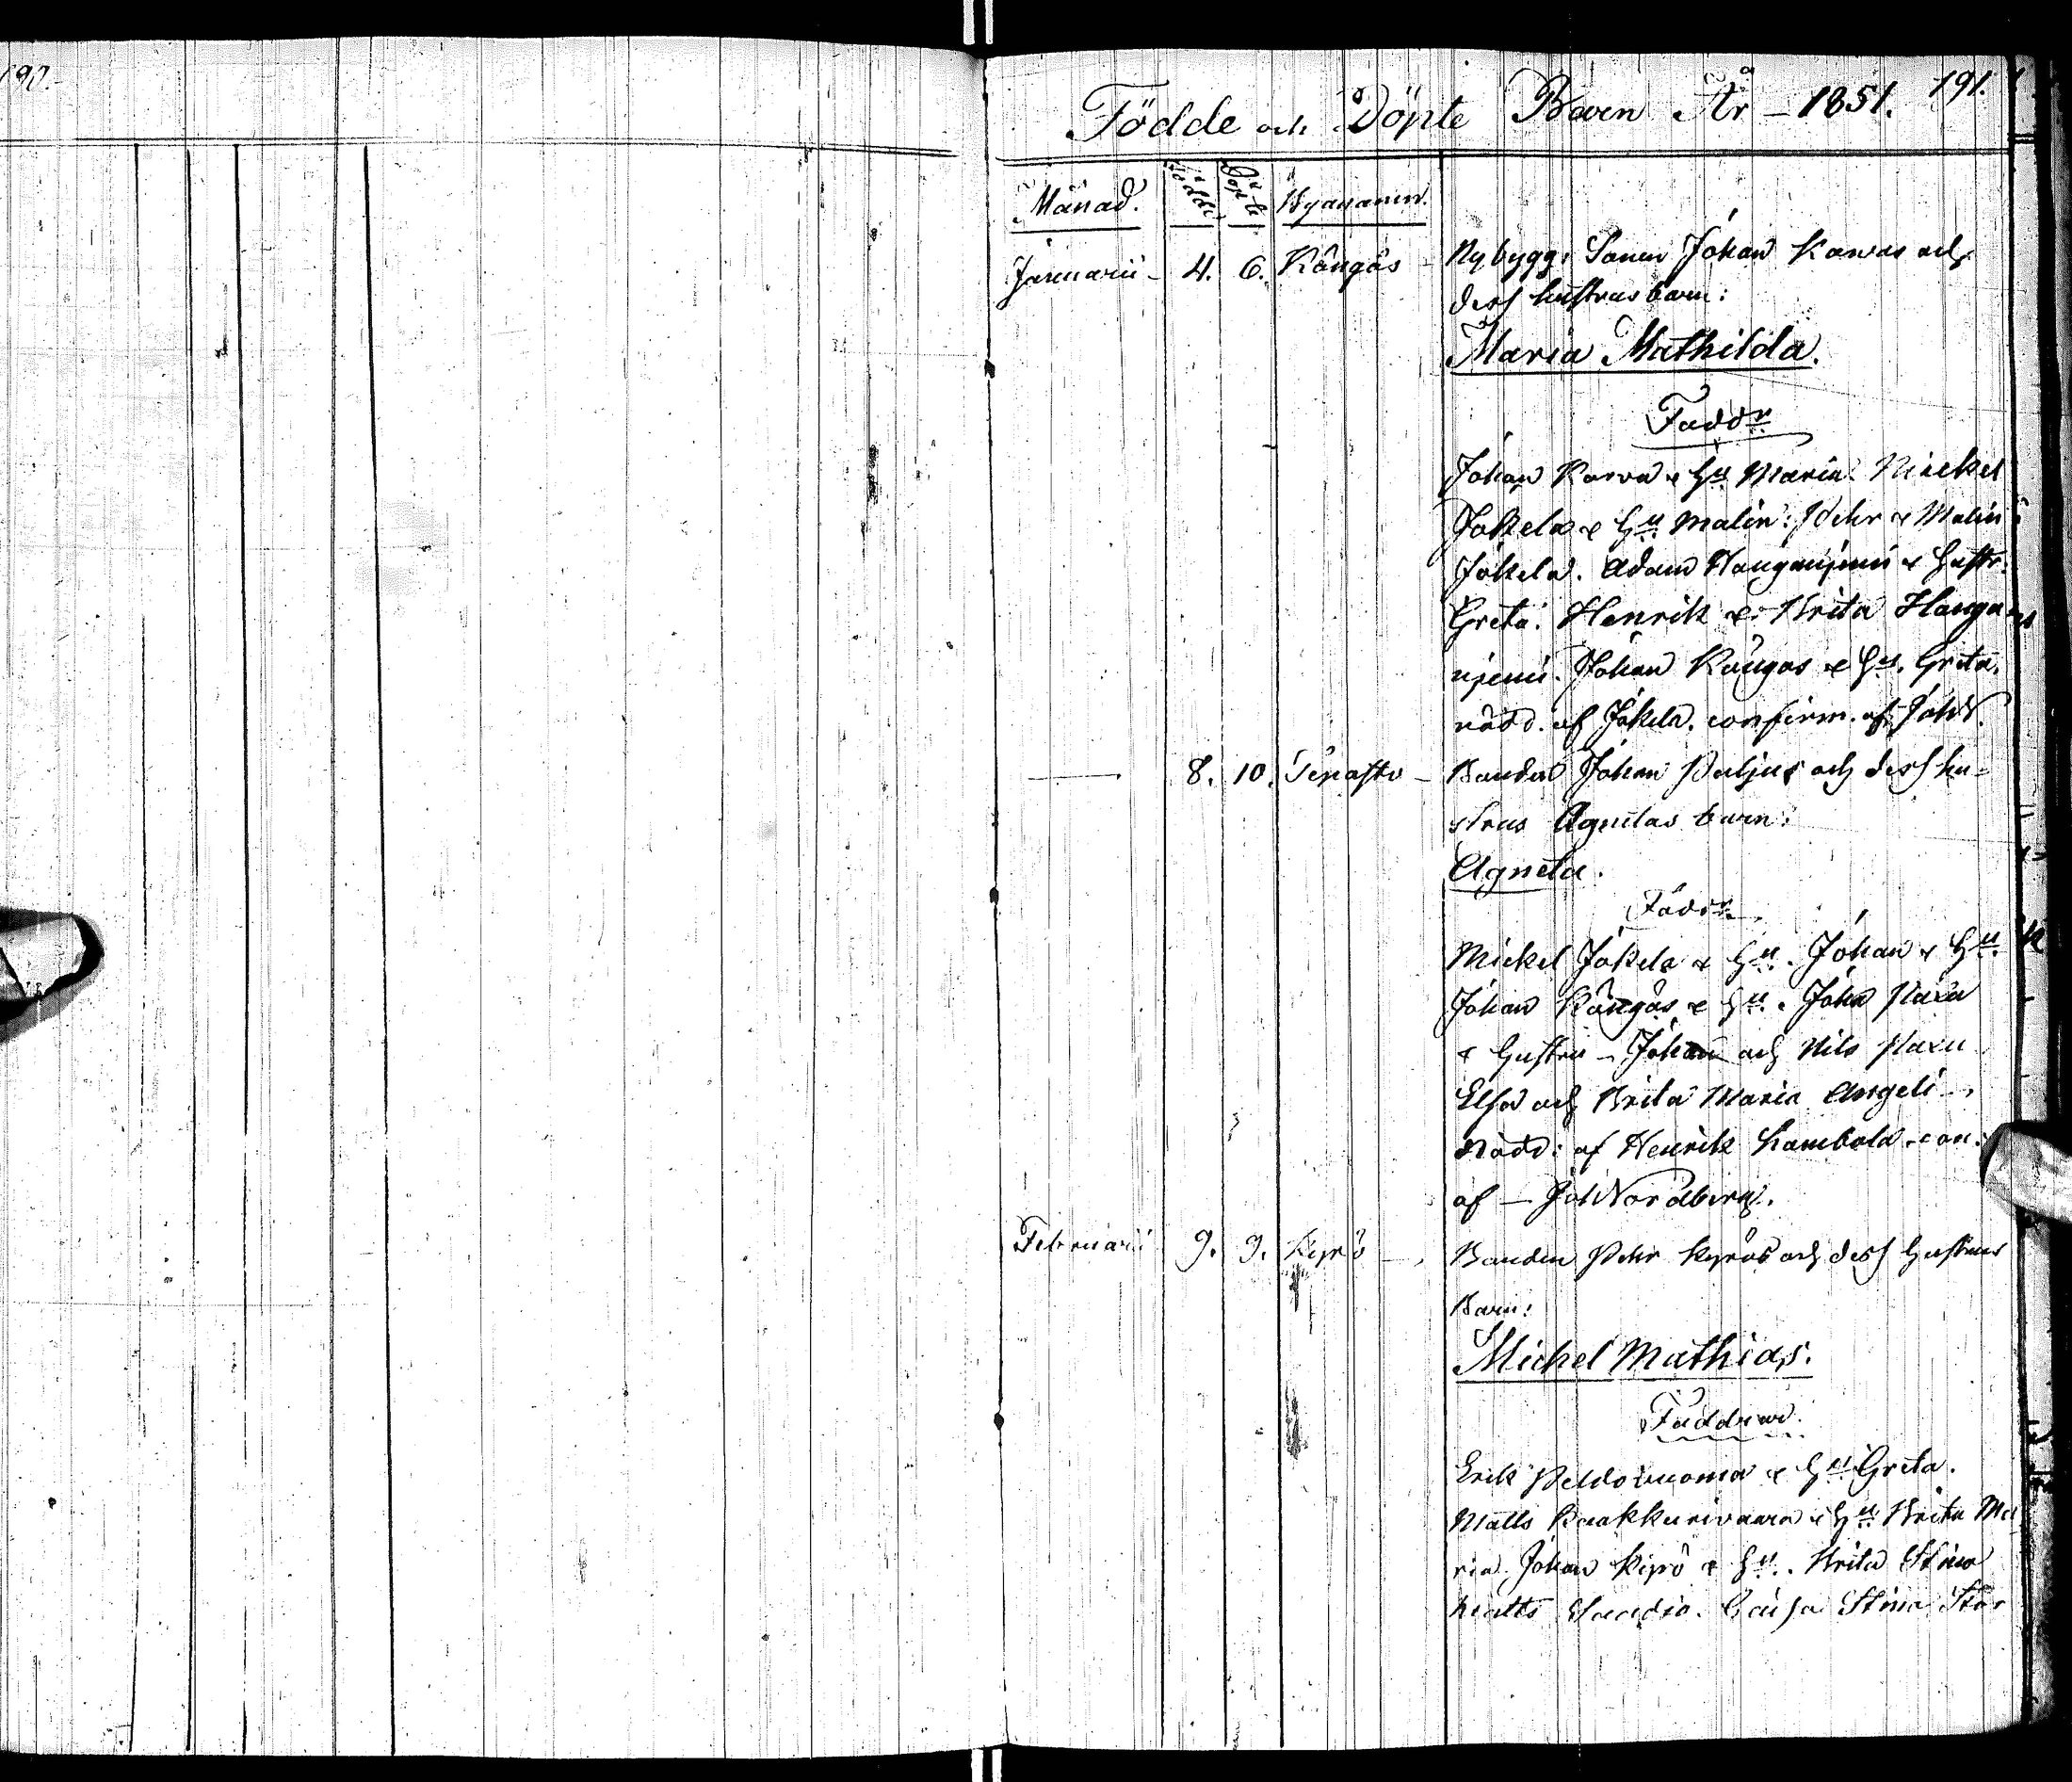 190.
Födde och Döpte Barn År - 1851. 191.
Månad. Födde Döpte Byanamn.
Januarii - 4. 6. Köngäs - Nybygg. Sonen Johan Karvas och
dess hustrus barn:
Maria Mathilda.
Faddr
Johan Karva & Hu Maria. Mickel
Jokela & Hu Malin: Pehr & Malin
Jokela. Adam Hangasjenii & Hustr:
Greta. Henrik & Brita Hangas
njemi. Johan Köngäs & Hu. Greta.
nödd. af Jokela. confirm. af JohN.
8. 10. Tepasto - Bonden Johan Paljus och dess hu-
strus Agnetas barn:
Agneta.
Faddr
Mickel Jokela & Hu. Johan & Hu.
Johan Köngäs & Hu. Joha
& Hustru - Johan och Nils
Elsa och Brita Maria Angeli
Nödd: af Henrik con.
af - JohNordberg.
Februarii 9. 9. Kyrö - Bonden Pehr Kyrös och dess Hustrus
Barn:
Michel Mathias.
Faddrar.
Erik Peldovuoma & Hu Greta.
Matts Kaakkurivaara & Hu Brita Ma
ria. Johan Kyrö & Hu. Brita Stina
Matts Caisa Stina Stor